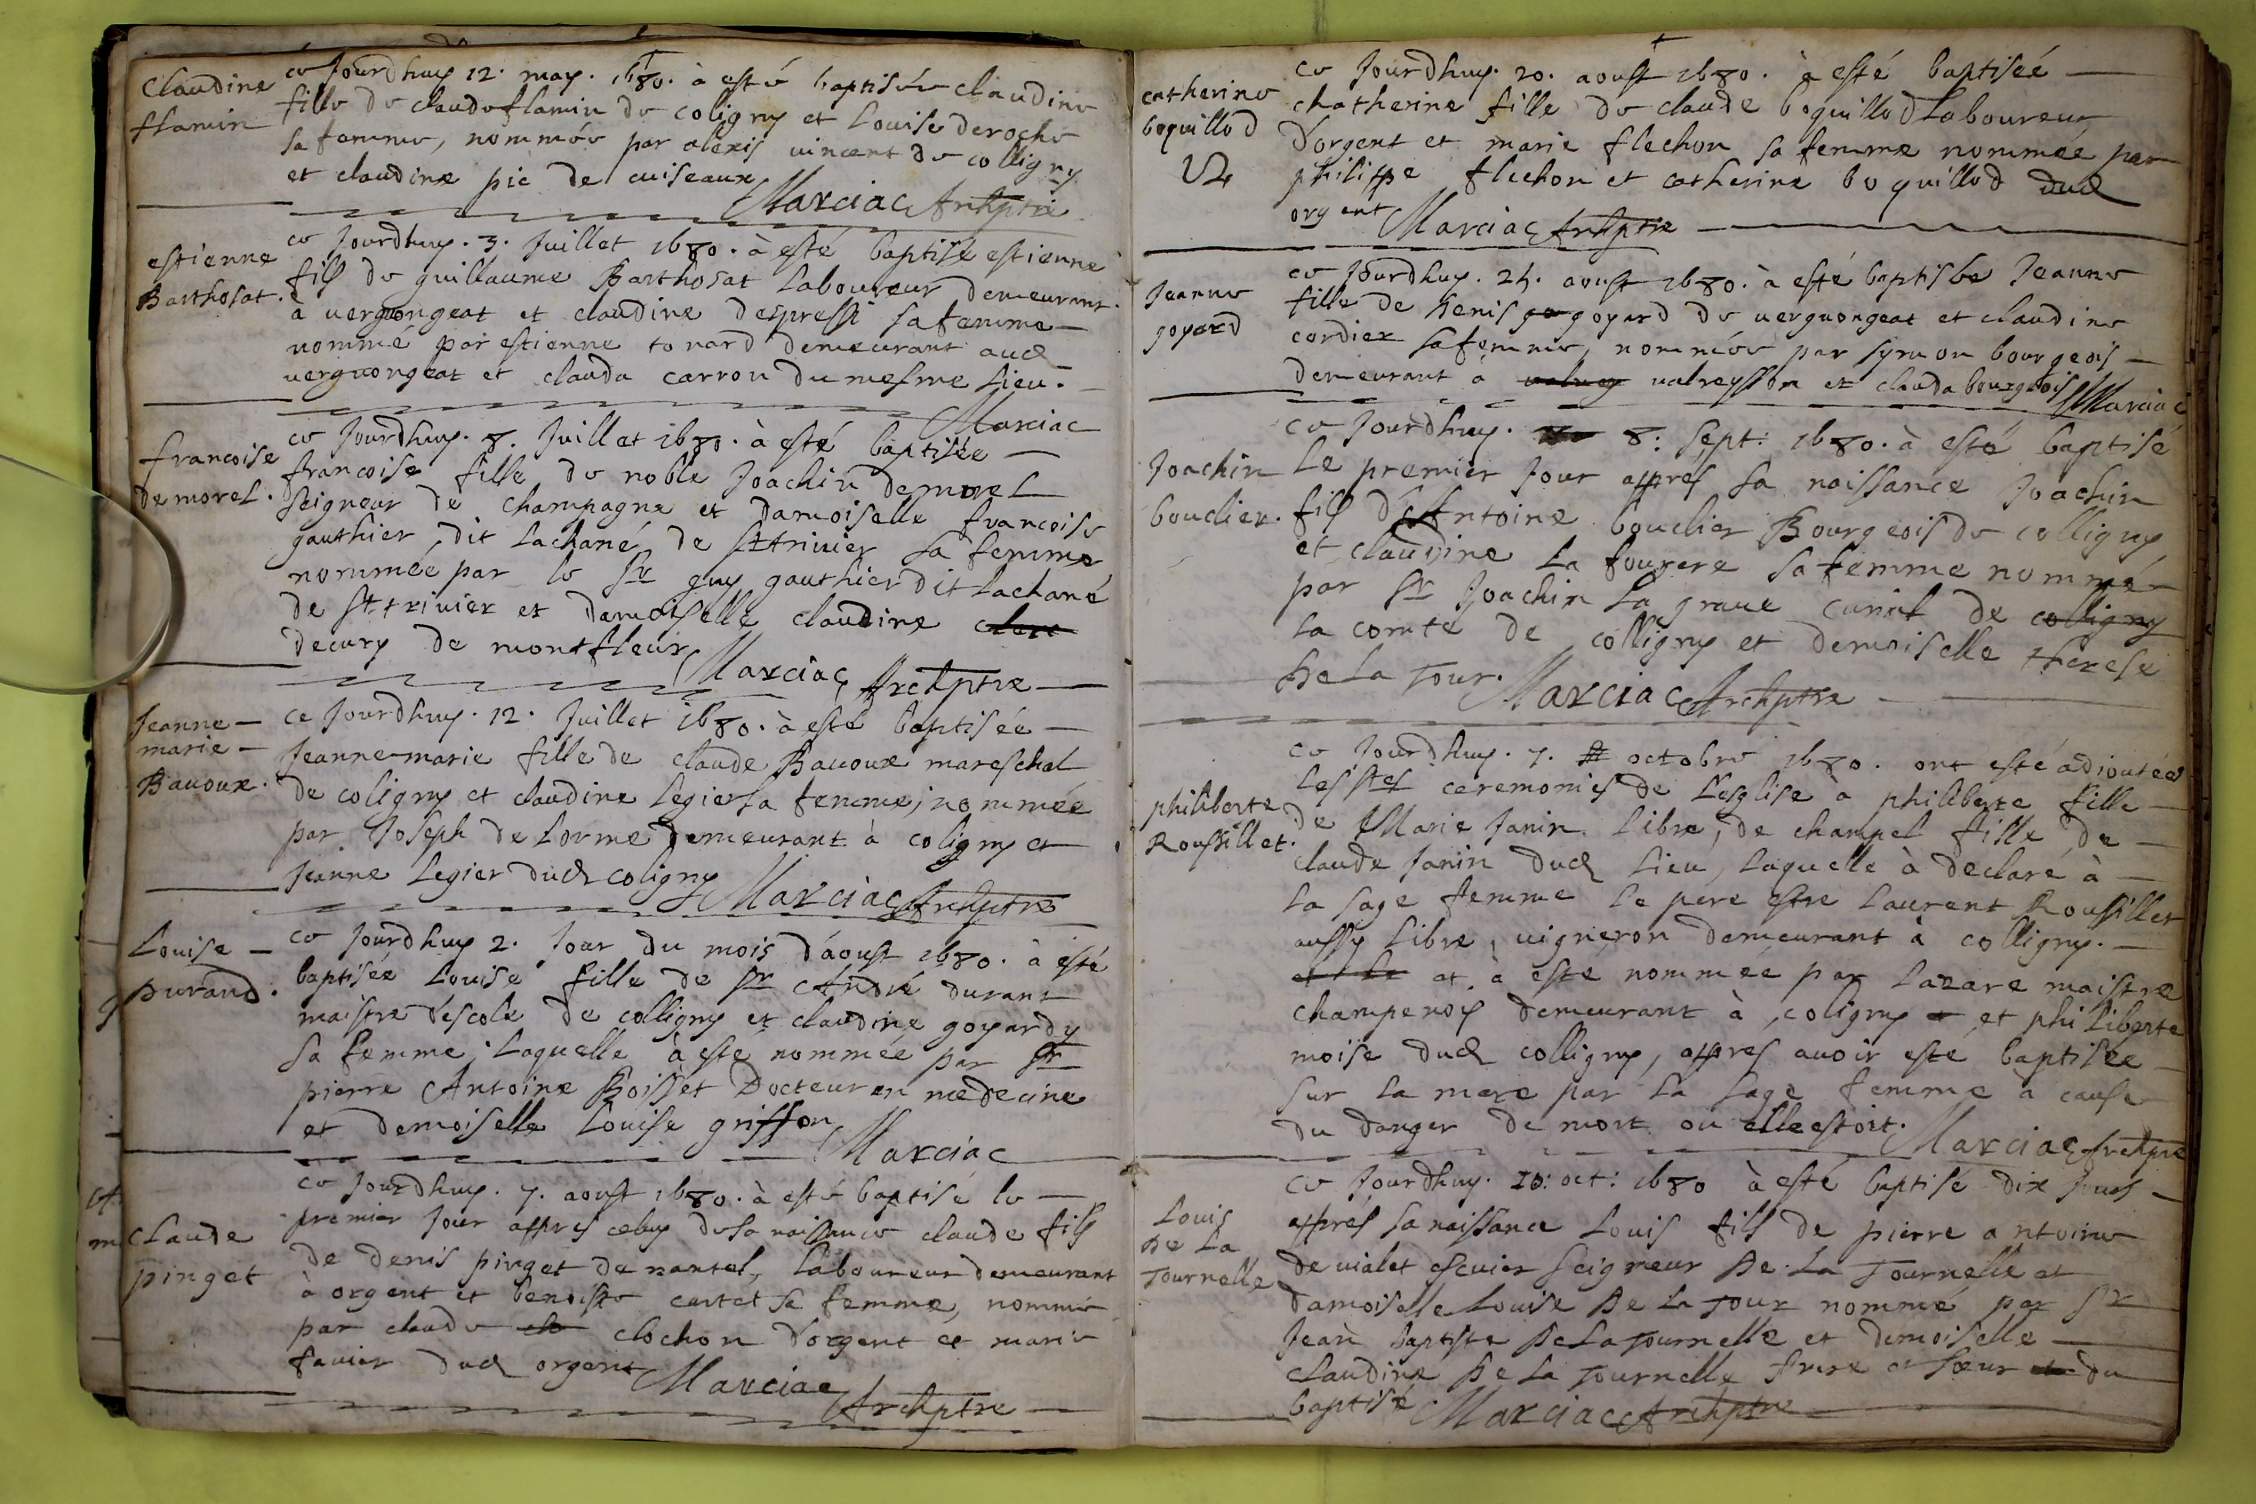 Claudine
flamin
ce Jourdhuy 12. may. 1680. à esté baptisée claudine
fille de claude flamin de coligny et Louise deroche
sa femme, nommée par alexis vincent de colligny
et claudine pic de cuiseaux
Marciac Archptre
estienne
Barthosat.
ce Jourdhuy. 3. Juillet 1680. à esté baptisé estienne
fils de guillaume Barthosat Laboureur demeurant.
a verguongeat et claudine despressi sa femme
nommé par estienne tonard demeurant aud
verguongeat et clauda carron du mesme Lieu.
Marciac
francoise
demorel.
ce Jourdhuy. 8. Juillet 1680. à esté baptisée
francoise fille de noble Joachin demorel
seigneur de champagne et damoiselle francoise
gauthier, dit Lachané de st trivier sa femme
nommée par le sr guy gauthier dit Lachané
de st trivier et damoiselle claudine
decury de montfleur
Marciac Archptre
Jeanne
marie
Bavoux.
ce Jourdhuy. 12. Juillet 1680. à esté baptisée
Jeanne-marie fille de claude Bavoux mareschal
de coligny et claudine Legier sa femme, nommée
par Joseph de Lorme demeurant à coligny et
Jeanne Legier dud coligny
Marciac Archptre
Louise
Durand.
ce Jourdhuy 2. Jour du mois d'aoust 1680. à esté
baptisée Louise fille de sr André durant
maistre d'escole de colligny et claudine goyardy
sa femme, Laquelle à esté nommée par sr
pierre Antoine Boisset Docteur en medecine
et demoiselle Louise griffon
Marciac
Claude
pinget
ce Jourdhuy. 7. aoust 1680. à esté baptisé le
premier Jour appres celuy de sa naissance claude fils
de denis pinget de nantel, Laboureur demeurant
à orgent et benoiste cartet sa femme, nommé
par claude clochon d'orgent et marie
favier dud orgent
Marciac
Archptre
catherine
boquillod
ce Jourdhuy. 20. aoust 1680. à esté baptiseé
chatherine fille de claude boquillod Laboureur
d'orgent et marie flechon sa femme nommeé par
philippe flechon et catherine boquillod dud
orgent
Marciac Archptre
Jeanne
goyard
ce Jourdhuy. 24. aoust 1680. à esté baptisée Jeanne
fille de Denis goyard de verguongeat et claudine
cordier sa femme, nommée par symon bourgeois
demeurant à valreysson et clauda bourgeois
Marciac
Joachin
bouclier.
ce Jourdhuy. 8: sept: 1680. à esté baptisé
Le premier Jour appres sa naissance Joachin
fils d'Antoine bouclier Bourgeois de colligny
et claudine La fourere sa femme nommé
par sr Joachin La grave curial de colligny
La comté de colligny et demoiselle therese
De La Tour.
Marciac Archptre
philiberte
Roussillet.
ce Jourdhuy. 7. octobre 1680. ont esté adjoutées
Les stes ceremonies de L'esglise à philiberte fille
de Marie Janin Libre, de champel fille de
claude Janin dud Lieu, Laquelle à declaré à
La sage femme Le pere estre Laurent Roussillet
aussy Libre, vigneron demeurant à colligny.
et à esté nommée par Lazare maistre
champenois demeurant à coligny et philiberte
moise dud colligny, appres avoir esté baptisée
sur La mere par La sage femme a cause
du danger de mort ou elle estoit.
Marciac Archptre
Louis
De La
Tournelle
ce Jourdhuy. 10: oct: 1680 à esté baptisé dix Jours
appres sa naissance Louis fils de pierre antoine
de vialet escuier seigneur De La Tournelle et
damoiselle Louise De La Tour nommé par sr
Jean baptiste De La Tournelle et demoiselle
claudine De La Tournelle frere et soeur du
baptisé
Marciac Archptre